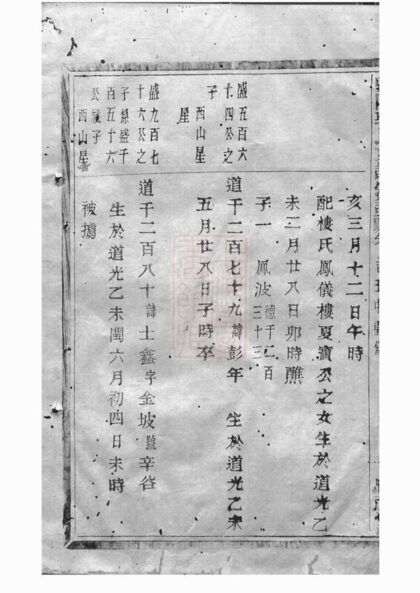 亥三月十二日午時
配樓氏鳳儀樓夏寶公之女生於道光乙
未二月廿八日卯時醮
子一 鳳波 德千二百三十三
盛五百六十四公之子
西山星
道千二百七十九諱彭年 生於道光乙未
五月廿八日子時卒
盛九百七十六公之子繼盛千百五十六公視子
西山星
道千二百八十諱士鑫字金坡號辛谷
生於道光乙未閏六月初四日未時
被擄